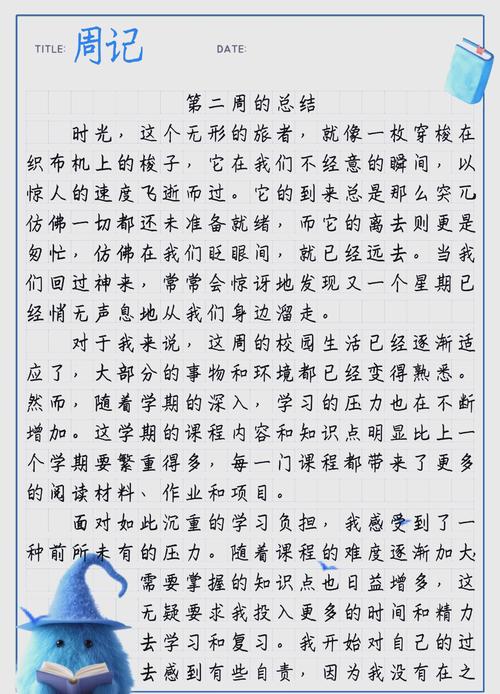 TITLE: 周记 DATE:
第二周的总结
时光，这个无形的旅者，就像一枚穿梭在
织布机上的梭子，它在我们不经意的瞬间，以
惊人的速度飞逝而过。它的到来总是那么突兀
仿佛一切都还未准备就绪，而它的离去则更是
匆忙，仿佛在我们眨眼间，就已经远去。当我
们回过神来，常常会惊讶地发现又一个星期已
经悄无声息地从我们身边溜走。
对于我来说，这周的校园生活已经逐渐适
应了，大部分的事物和环境都已经变得熟悉。
然而，随着学期的深入，学习的压力也在不断
增加。这学期的课程内容和知识点明显比上一
个学期要繁重得多，每一门课程都带来了更多
的阅读材料、作业和项目。
面对如此沉重的学习负担，我感受到了一
种前所未有的压力。随着课程的难度逐渐加大
需要掌握的知识点也日益增多，这
无疑要求我投入更多的时间和精力
去学习和复习。我开始对自己的过
去感到有些自责，因为我没有在之